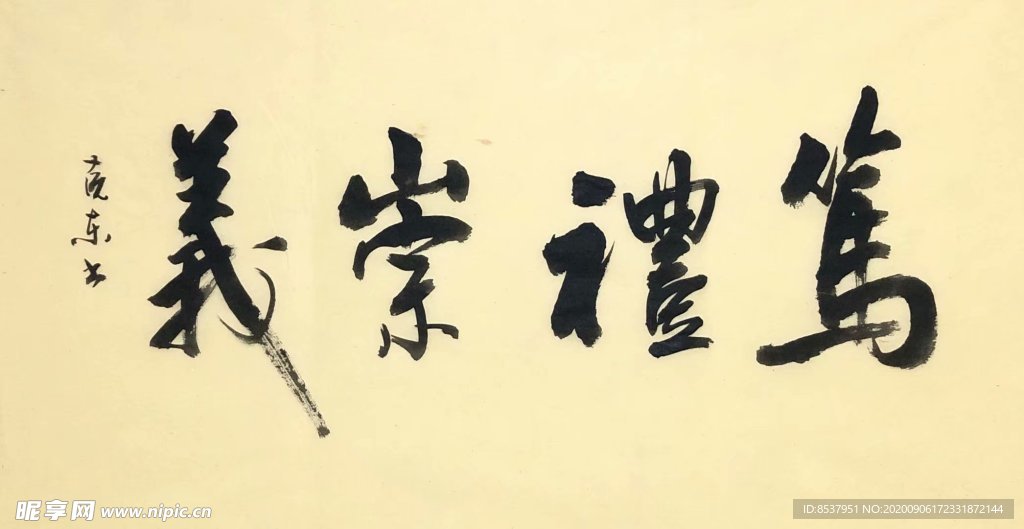 篤禮崇義
东书
昵享网 www.nipic.cn
ID:8537951 NO:20200906172331872144